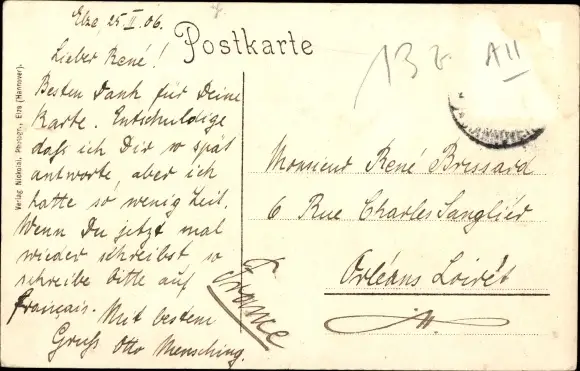 Elze, 25.II.06.
Postkarte
Lieber René!
Besten Dank für Deine
Karte. Entschuldige
daß ich Dir so spät
antworte, aber ich
hatte so wenig Zeit.
Wenn Du jetzt mal
wieder schreibst so
schreibe bitte auf
Français. Mit bestem
Gruß Otto Mensching.
Monsieur René Brissard
6 Rue Charles Sanglier
Orléans Loirét
France
13
A II
Photogr., Elze (Hannover).